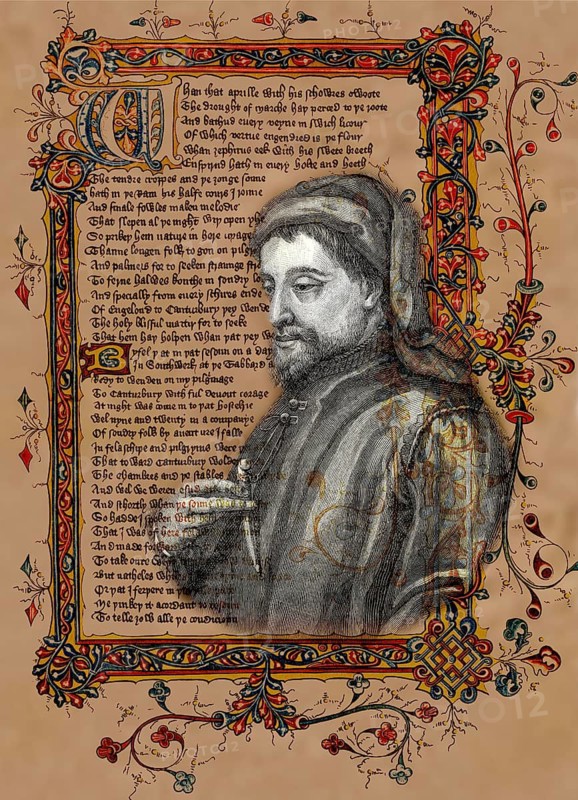 PHOTO12
Whan that aprille with his schowres swoote
The drought of marche hap perced to pe roote
And bathud euery veyne in swich licour
Of which vertue engendred is pe flour
Whan zephirus eek with his swete breeth
Enspirud hath in euery holte and heeth
The tendre croppes and pe zonge sonne
hath in pe Ram his halfe cours I ronne
And smale fowles maken melodie
That slepen al pe night wip open
So prikep hem nature in here
Thanne longen folk to gon on
And palmers for to seeken straunge
To ferne halwes kouthe in sondry
And specially from euery schires ende
Of Engelond to Canturbury pey wende
The holy blisful martir for to seeke
That hem hap holpen whan pat pey
Byfel pat in pat sesoun on a day
In Southwerk at pe Tabbard
Redy to wenden on my pilgrimage
To Canturbury with ful deuout corage
At night was come in to pat hostelrie
Wel nyne and twenty in a companye
Of sondry folk by auenture I falle
In felaschipe and pilgryms were
That to ward Canturbury wolden
The chambres and pe stables
And wel we weren esud
And schortly whan pe sonne
So hadde I spoken with
That I was of here
And made forward
To take oure
But natheles while
Or pat I ferpere in
Me pinkep it acordant to resoun
To telle zow alle pe condicioun
PHOTO12